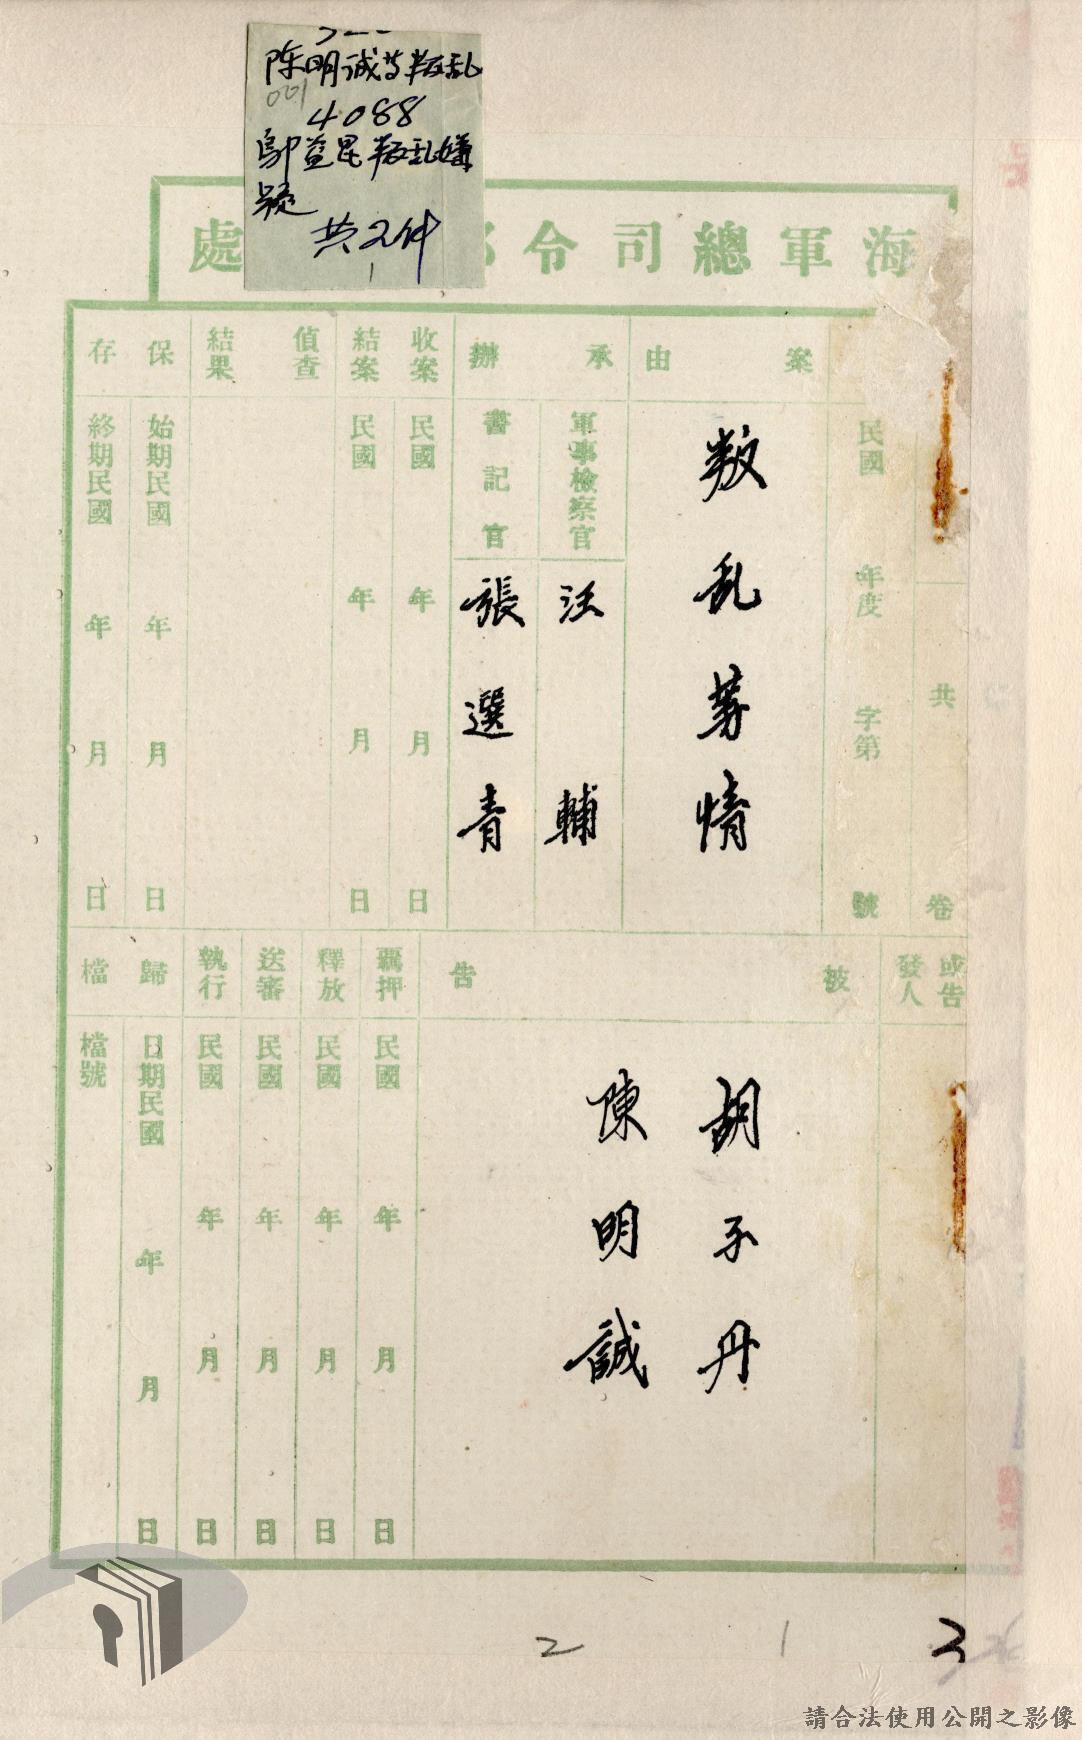 陈明诚等叛乱
001
4088
鄔益昆叛乱嫌
疑
共2件
1
海軍總司令部 處
共 卷
民國 年度 字第 號
案由
叛乱等情
承辦
軍事檢察官
汪輔
書記官
張選青
收案
民國 年 月 日
結案
民國 年 月 日
偵查結果
保存
始期民國 年 月 日
終期民國 年 月 日
或告發人
被告
胡子丹
陳明誠
羈押
民國 年 月 日
釋放
民國 年 月 日
送審
民國 年 月 日
執行
民國 年 月 日
歸檔
日期民國 年 月 日
檔號
2 1 3
請合法使用公開之影像